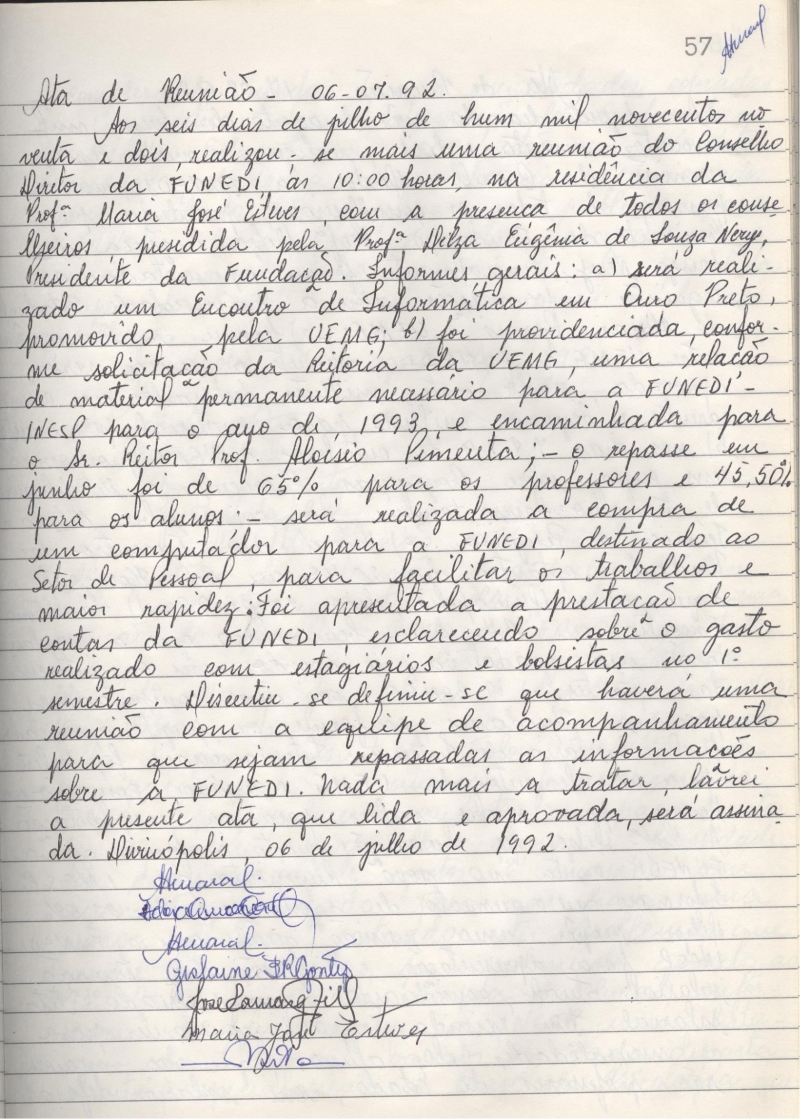 57 Amaral
Ata de Reunião - 06-07.92.
Aos seis dias de julho de hum mil novecentos no
venta e dois, realizou-se mais uma reunião do Conselho
Diretor da FUNEDI, às 10:00 horas, na residência da
Profª Maria José Esteves, com a presença de todos os conse
lheiros, presidida pela Profª Dilza Eugênia de Souza Nery,
Presidente da Fundação. Informes gerais: a) será reali-
zado um Encontro de Informática em Ouro Preto,
promovido pela UEMG; b) foi providenciada, confor-
me solicitação da Reitoria da UEMG, uma relação
de material permanente necessário para a FUNEDI-
INESP para o ano de 1993, e encaminhada para
o Sr. Reitor Prof. Aloisio Pimenta; - o repasse em
junho foi de 65% para os professores e 45,50%
para os alunos; - será realizada a compra de
um computador para a FUNEDI, destinado ao
Setor de Pessoal, para facilitar os trabalhos e
maior rapidez. Foi apresentada a prestação de
contas da FUNEDI, esclarecendo sobre o gasto
realizado com estagiários e bolsistas no 1º
semestre. Discutiu-se definiu-se que haverá uma
reunião com a equipe de acompanhamento
para que sejam repassadas as informações
sobre a FUNEDI. Nada mais a tratar, lavrei
a presente ata, que lida e aprovada, será assina
da. Divinópolis, 06 de julho de 1992.
Amaral.
Amaral.
Gislaine
José
Maria José Esteves